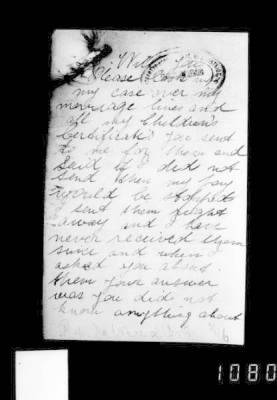 Will you
Please look up
my case over my
marriage lines and
all my Children's
Certificates you send
to me for them and
said if I did not
send them my pay
would be stopped
I sent them right
away and I have
never received them
since and when I
asked you about
them your answer
was you did not
know anything about
1080